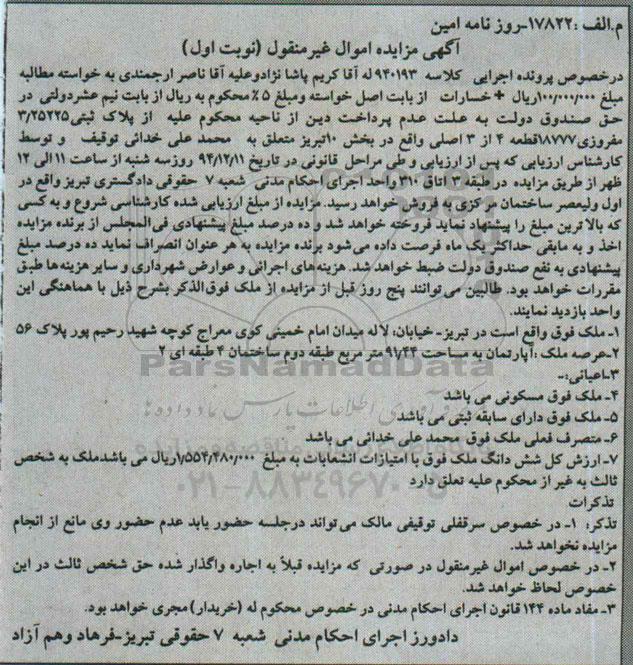 م.الف :۱۷۸۲۲-روز نامه امین
آگهی مزایده اموال غیرمنقول (نوبت اول)
درخصوص پرونده اجرایی کلاسه ۹۴۰۱۹۳ له آقا کریم پاشا نژادوعلیه آقا ناصر ارجمندی به خواسته مطالبه
مبلغ ۱۰۰/۰۰۰/۰۰۰ریال +خسارات از بابت اصل خواسته ومبلغ ۵٪محکوم به ریال از بابت نیم عشردولتی در
حق صندوق دولت به علت عدم پرداخت دین از ناحیه محکوم علیه از پلاک ثبتی۳/۲۵۲۲۵
مفروزی۱۸۷۷۷قطعه ۴ از ۳ اصلی واقع در بخش ۱۰تبریز متعلق به محمد علی خدائی توقیف و توسط
کارشناس ارزیابی که پس از ارزیابی و طی مراحل قانونی در تاریخ ۹۴/۱۲/۱۱ روزسه شنبه از ساعت ۱۱الی ۱۲
ظهر از طریق مزایده در طبقه۲ اتاق ۳۱۰واحد اجرای احکام مدنی شعبه ۷ حقوقی دادگستری تبریز واقع در
اول ولیعصر ساختمان مرکزی به فروش خواهد رسید. مزایده از مبلغ ارزیابی شده کارشناسی شروع و به کسی
که بالاترین مبلغ را پیشنهاد نماید فروخته خواهد شد و ده درصد مبلغ پیشنهادی فی المجلس از برنده مزایده
اخذ و به مابقی حداکثر یک ماه فرصت داده می شود برنده مزایده به هر عنوان انصراف نماید ده درصد مبلغ
پیشنهادی به نفع صندوق دولت ضبط خواهد شد. هزینه های اجرائی و عوارض شهرداری و سایر هزینه ها طبق
مقررات خواهد بود. طالبین می توانند پنج روز قبل از مزایده از ملک فوق الذکر بشرح ذیل با هماهنگی این
واحد بازدید نمایند.
۱- ملک فوق واقع است در تبریز- خیابان: لاله میدان امام خمینی کوی معراج کوچه شهید رحیم پور پلاک ۵۶
۲-عرصه ملک :آپارتمان به مساحت ۹۱/۴۴ متر مربع طبقه دوم ساختمان ۴ طبقه ای ۲
۳-اعیانی:-
۴- ملک فوق مسکونی می باشد
۵- ملک فوق دارای سابقه ثبتی می باشد
۶- متصرف فعلی ملک فوق محمد علی خدائی می باشد
۷- ارزش کل شش دانگ ملک فوق با امتیازات انشعابات به مبلغ ۱/۵۵۴/۴۸۰/۰۰۰ریال می باشدملک به شخص
ثالث به غیر از محکوم علیه تعلق دارد
تذکرات
تذکر: ۱- در خصوص سرقفلی توقیفی مالک می تواند درجلسه حضور یابد عدم حضور وی مانع از انجام
مزایده نخواهد شد.
۲- در خصوص اموال غیرمنقول در صورتی که مزایده قبلاً به اجاره واگذار شده حق شخص ثالث در این
خصوص لحاظ خواهد شد.
۳- مفاد ماده ۱۴۴ قانون اجرای احکام مدنی در خصوص محکوم له (خریدار) مجری خواهد بود.
دادورز اجرای احکام مدنی شعبه ۷ حقوقی تبریز-فرهاد وهم آزاد
ParsNamadData
۰۲۱-۸۸۳۴۹۶۷۰